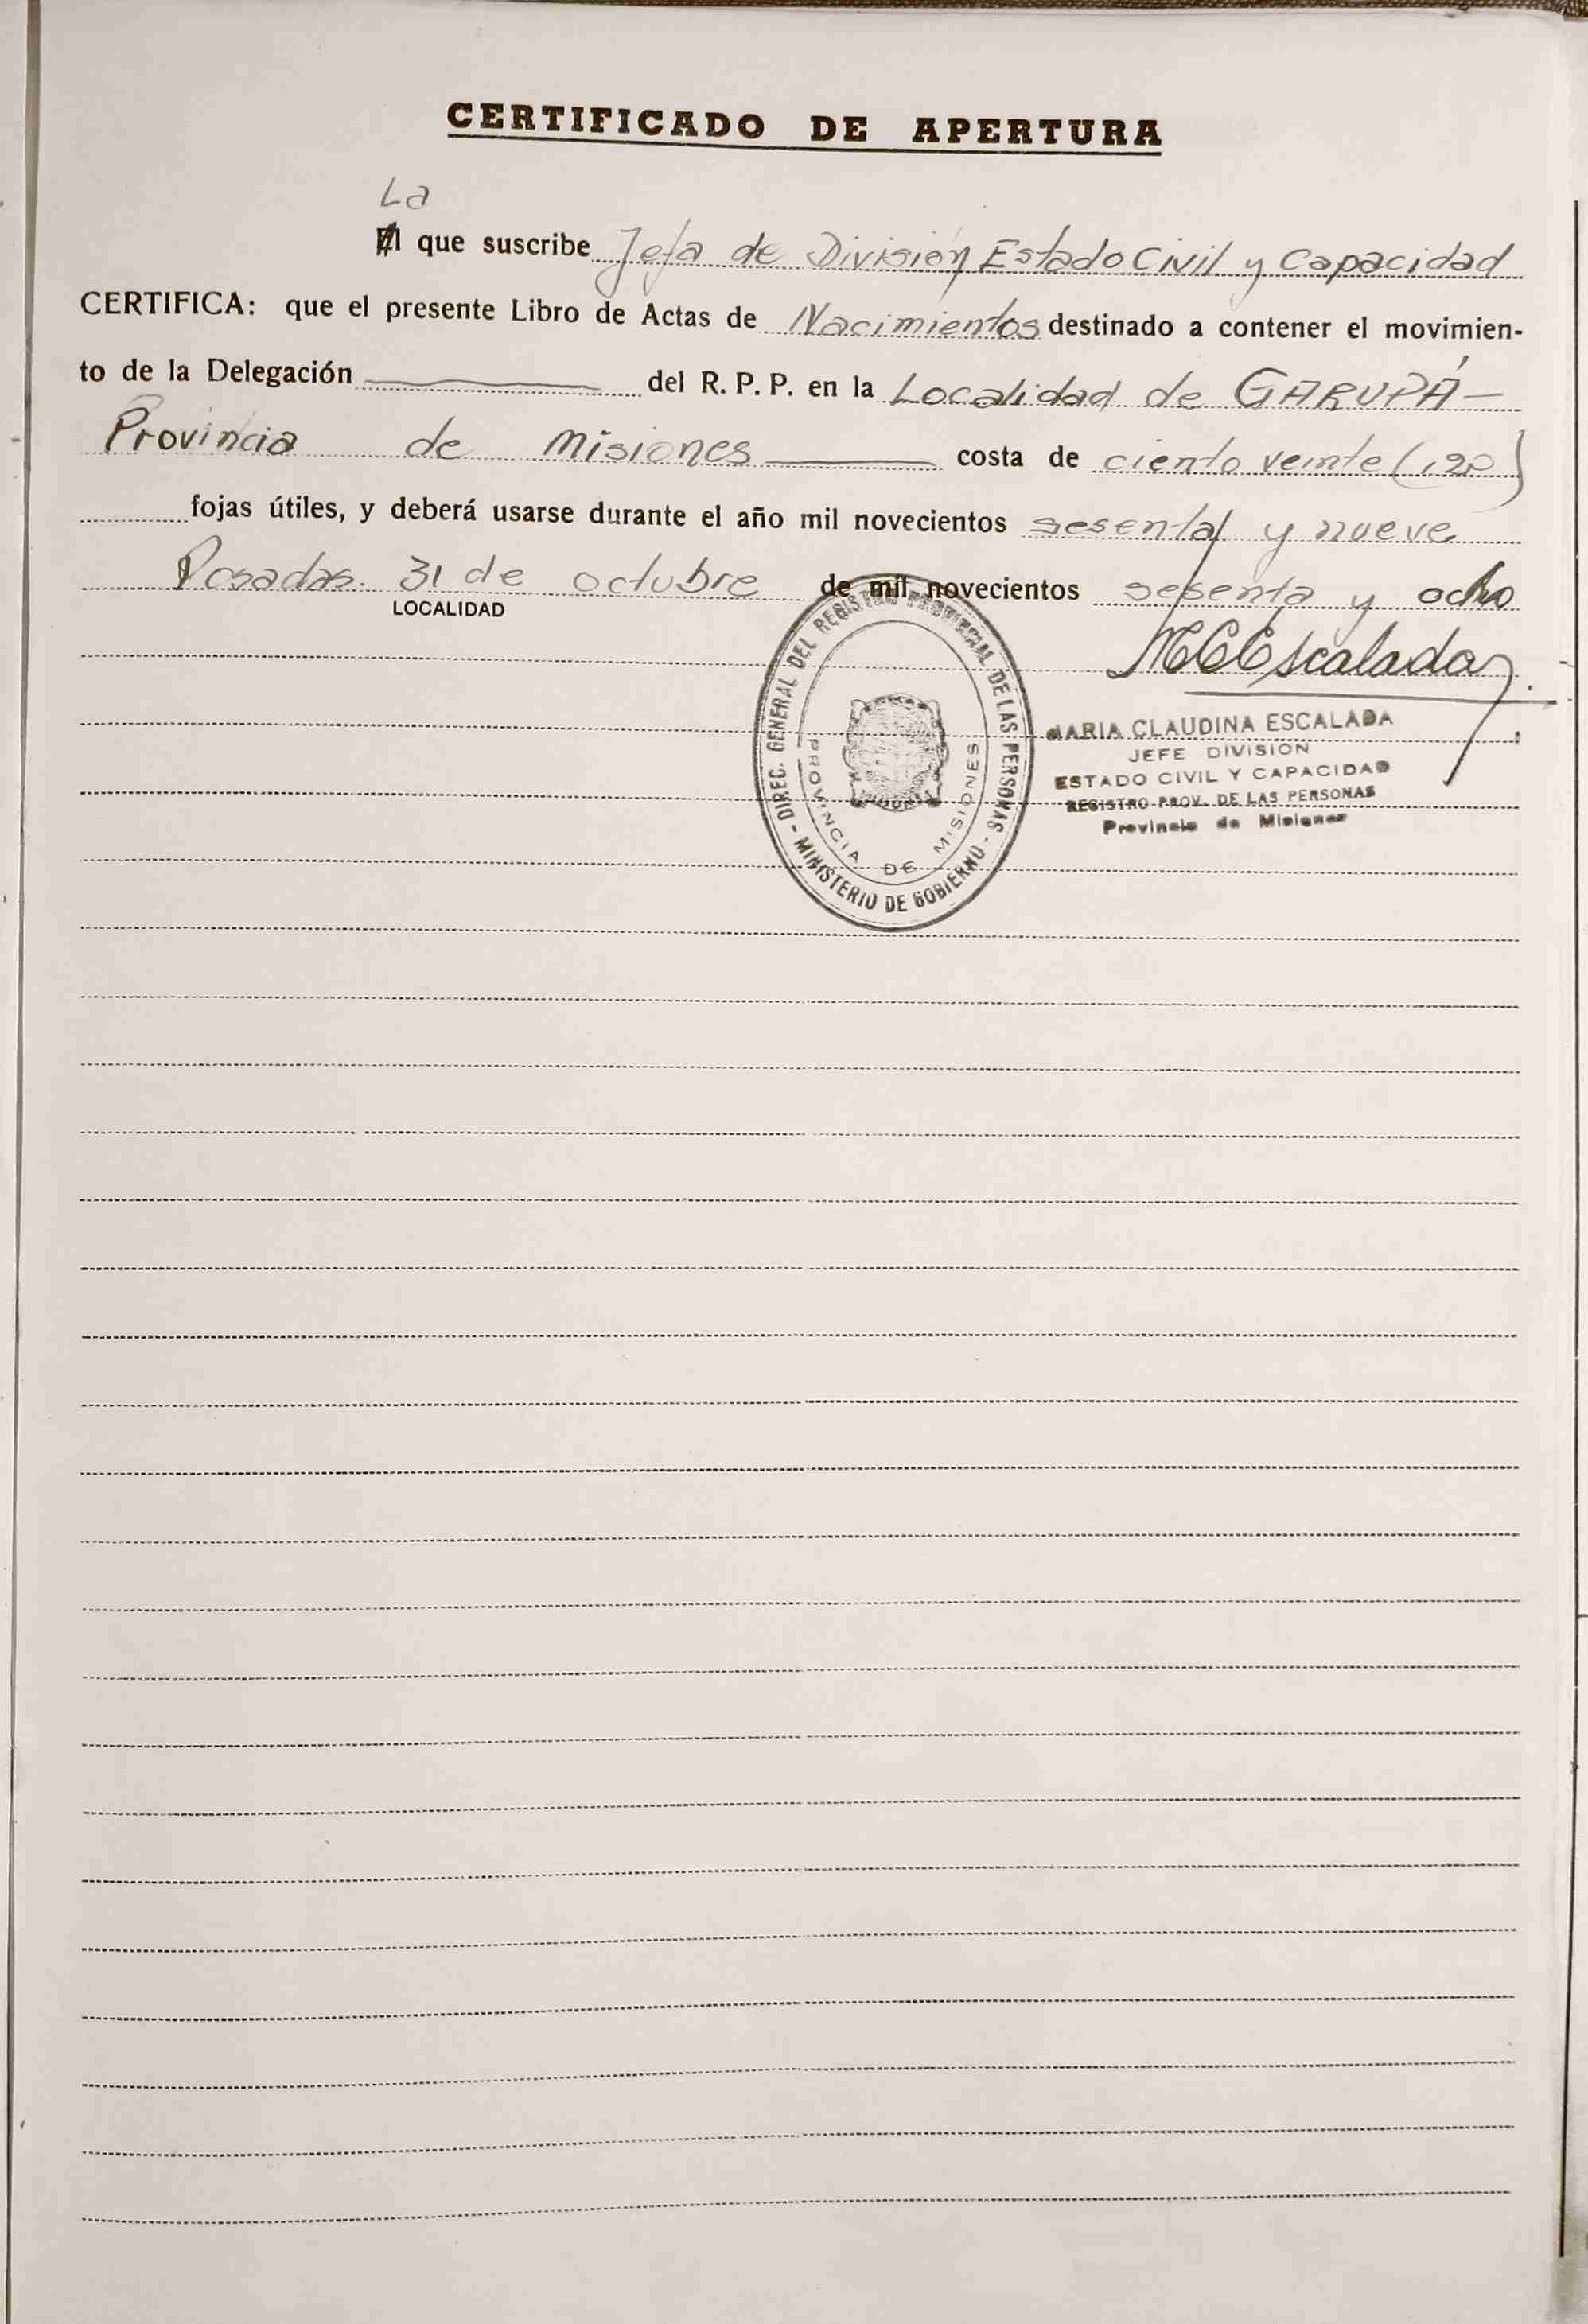 CERTIFICADO DE APERTURA
La
El que suscribe Jefa de División Estado Civil y Capacidad
CERTIFICA: que el presente Libro de Actas de Nacimientos destinado a contener el movimien-
to de la Delegación del R. P. P. en la Localidad de GARUPÁ-
Provincia de Misiones costa de ciento veinte (120)
fojas útiles, y deberá usarse durante el año mil novecientos sesenta y nueve
Posadas. 31 de octubre de mil novecientos sesenta y ocho
LOCALIDAD
MCEscalada
DIREC. GENERAL DEL REGISTRO PROVINCIAL DE LAS PERSONAS - MINISTERIO DE GOBIERNO -
PROVINCIA DE MISIONES
MARIA CLAUDINA ESCALADA
JEFE DIVISION
ESTADO CIVIL Y CAPACIDAD
REGISTRO PROV. DE LAS PERSONAS
Provincia de Misiones